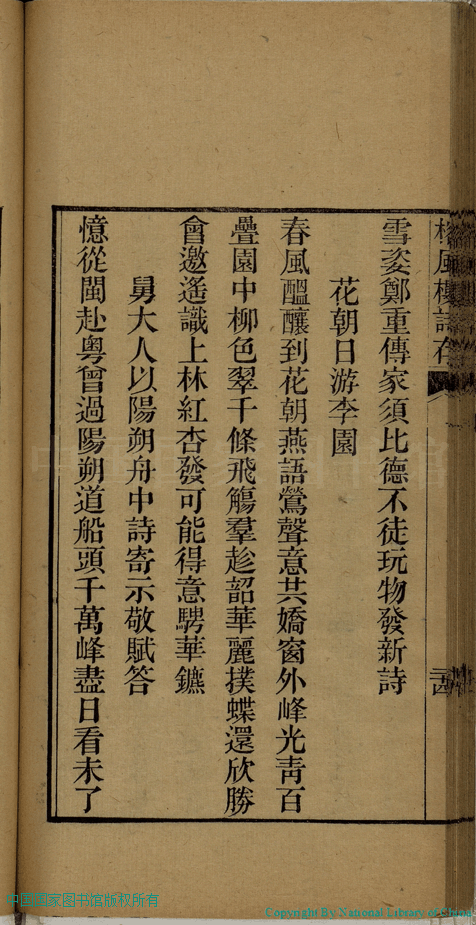 風樓詩存
雪姿鄭重傳家須比德不徒玩物發新詩
花朝日游李園
春風醞釀到花朝燕語鶯聲意共嬌窗外峰光靑百
疊園中柳色翠千條飛觴羣趁韶華麗撲蝶還欣勝
會邀遙識上林紅杏發可能得意騁華鑣
舅大人以陽朔舟中詩寄示敬賦答
憶從閩赴粵曾過陽朔道船頭千萬峰盡日看未了
中国国家图书馆版权所有
Copyright By National Library of China